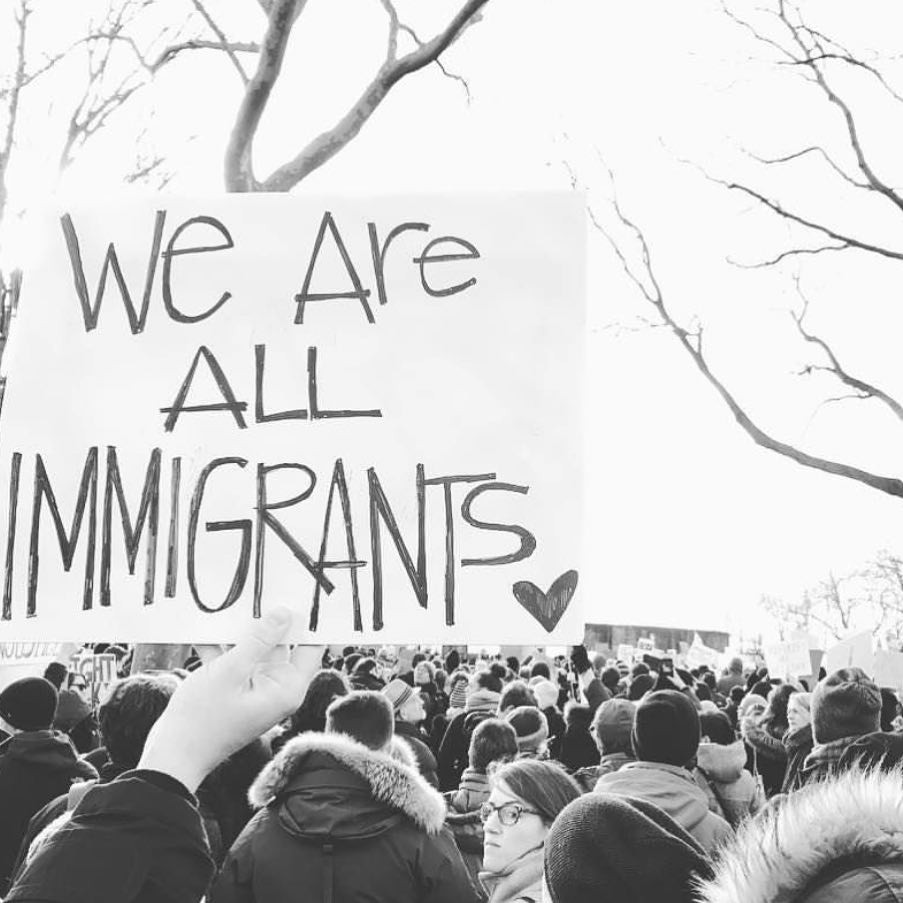 We Are
ALL
IMMIGRANTS